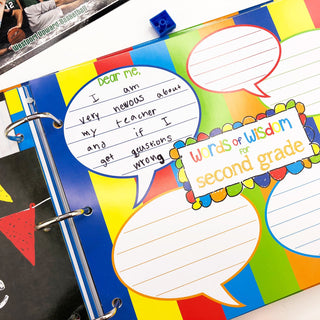 Dear Me,
I am
very nevous about
my teacher
and if I
get qcustions
wrong
words of wisdom
for
second grade